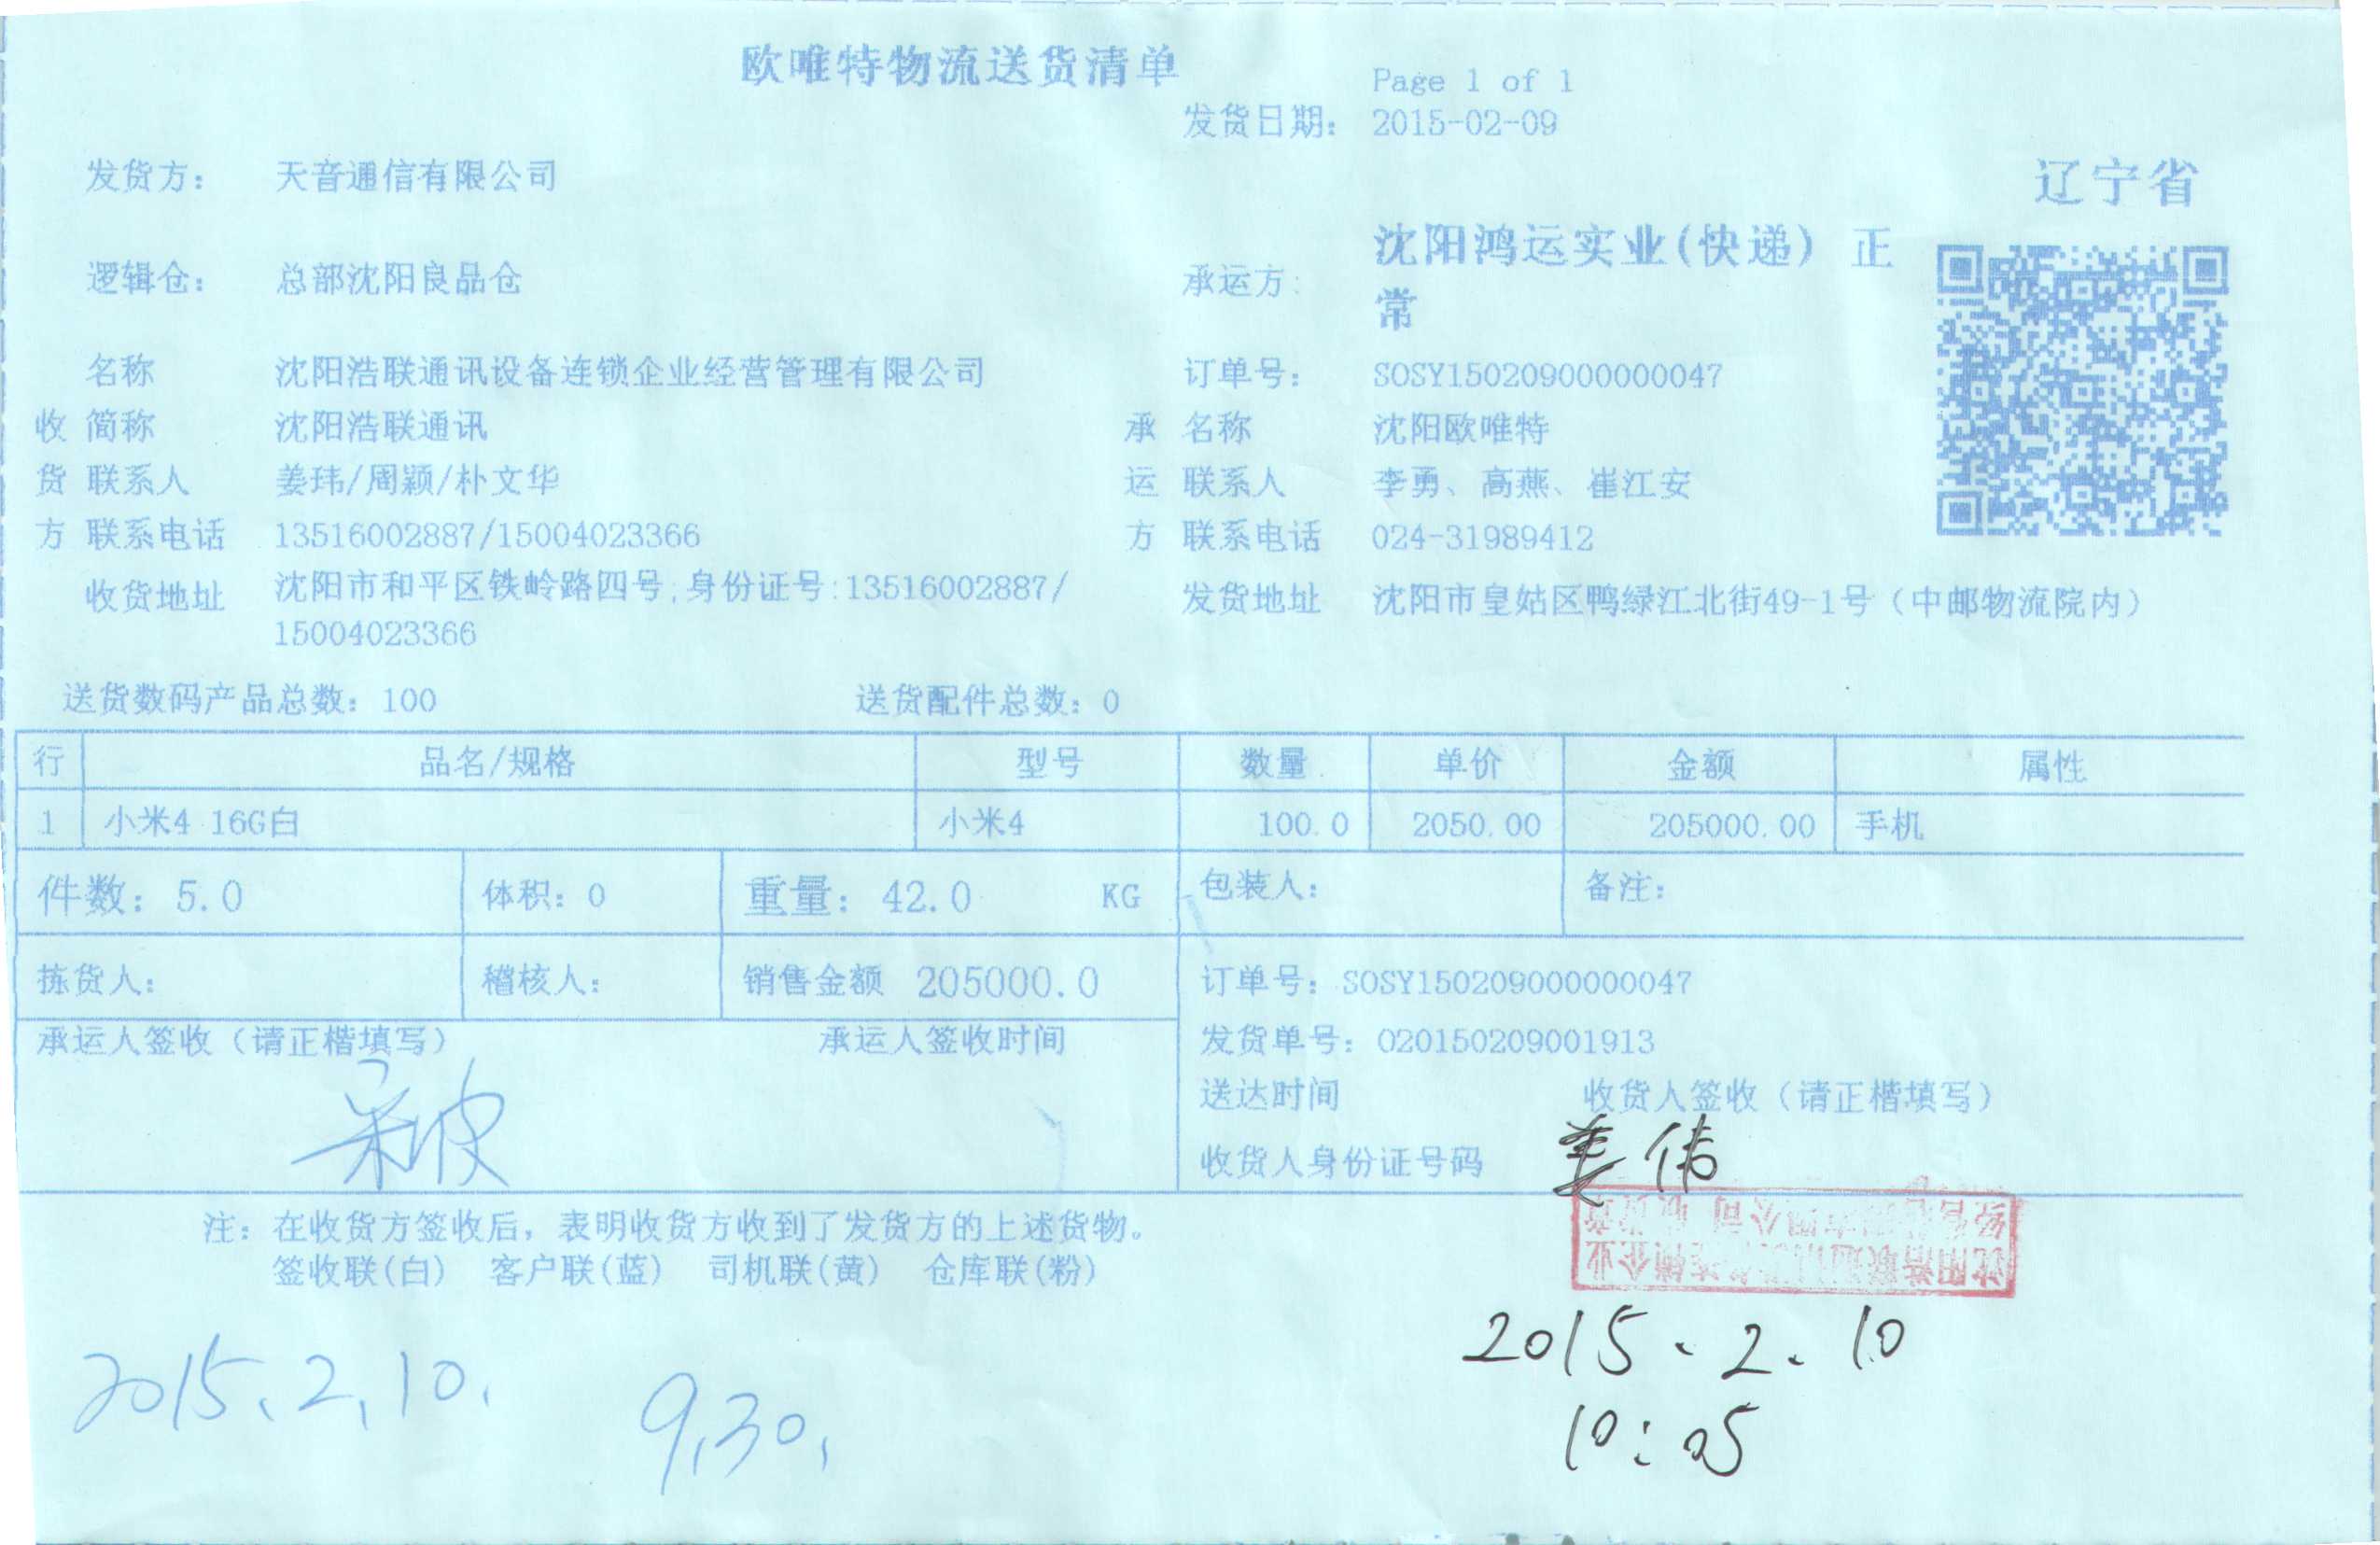 欧唯特物流送货清单
Page 1 of 1
发货日期: 2015-02-09
发货方: 天音通信有限公司
辽宁省
逻辑仓: 总部沈阳良品仓
承运方: 沈阳鸿运实业(快递) 正
常
名称 沈阳浩联通讯设备连锁企业经营管理有限公司 订单号: SOSY150209000000047
收 简称 沈阳浩联通讯 承 名称 沈阳欧唯特
货 联系人 姜玮/周颖/朴文华 运 联系人 李勇、高燕、崔江安
方 联系电话 13516002887/15004023366 方 联系电话 024-31989412
收货地址 沈阳市和平区铁岭路四号;身份证号:13516002887/
15004023366
发货地址 沈阳市皇姑区鸭绿江北街49-1号（中邮物流院内）
送货数码产品总数: 100 送货配件总数: 0
行 品名/规格 型号 数量 单价 金额 属性
1 小米4 16G白 小米4 100.0 2050.00 205000.00 手机
件数: 5.0 体积: 0 重量: 42.0 KG 包装人: 备注:
拣货人: 稽核人: 销售金额 205000.0 订单号: SOSY150209000000047
承运人签收（请正楷填写） 承运人签收时间 发货单号: 020150209001913
送达时间 收货人签收（请正楷填写）
收货人身份证号码 姜伟
注: 在收货方签收后, 表明收货方收到了发货方的上述货物。
签收联(白) 客户联(蓝) 司机联(黄) 仓库联(粉)
2015.2.10
10:05
2015、2、10、 9,30,